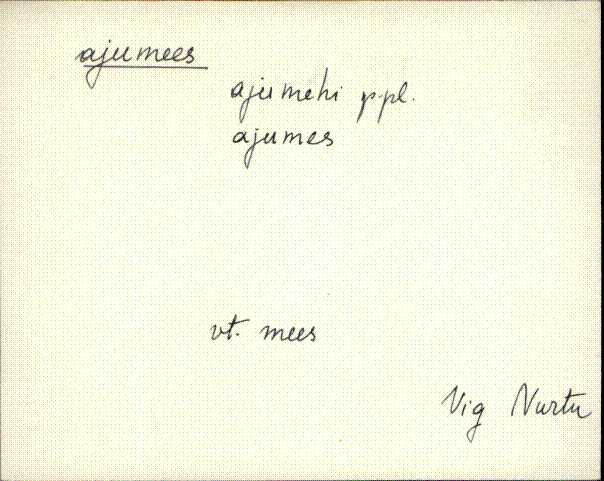 ajumees
ajumehi p.pl.
ajumes
vt. mees
Vig Nurtu